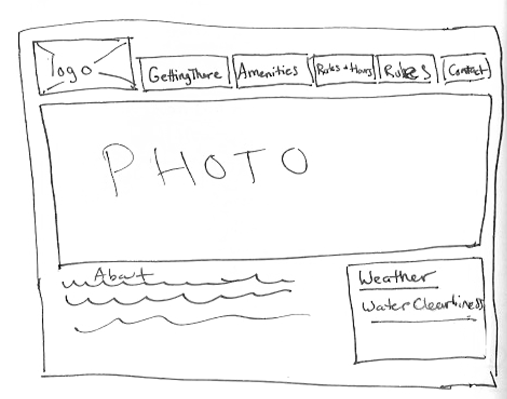 logo
Getting There
Amenities
+ Hours
Rules
Contact
PHOTO
About
Weather
Water Cleanliness